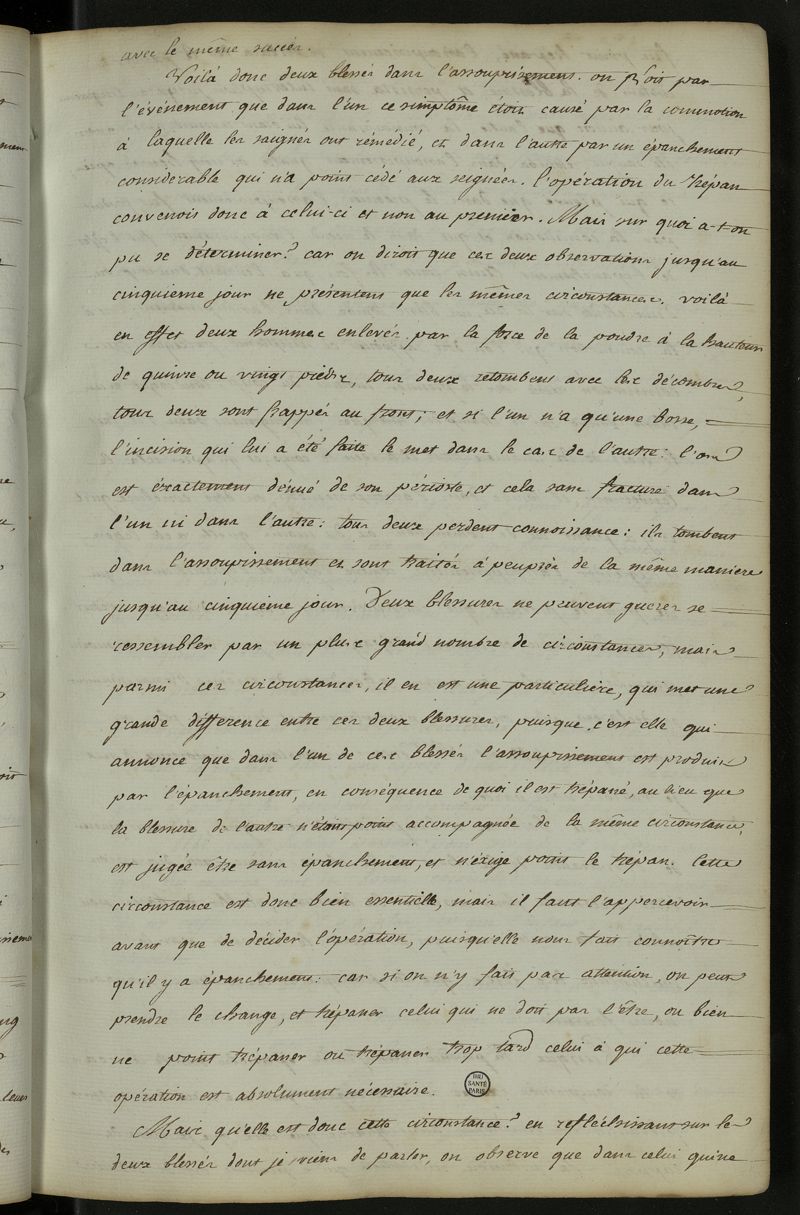 avec le même succès.
Voilà donc deux blessés dans l'assoupissement. on voit par
l'événement que dans l'un ce simptôme étoit causé par la commotion
à laquelle les saignés ont rémédié, et dans l'autre par un épanchement
considerable qui n'a point cédé aux seignées. l'opération du trépan
convenoit donc à celui-ci et non au premier. Mais sur quoi a-t-on
pu se déterminer? car on diroit que ces deux observations jusqu'au
cinquieme jour ne présentent que les mêmes circonstances. voilà
en effet deux hommes enlevés par la force de la poudre à la hauteur
de quinze ou vingt pieds, tous deux retombent avec les décombres,
tous deux sont frappés au front; et si l'un n'a qu'une bosse,
l'incision qui lui a été faite le met dans le cas de l'autre: l'os
est éxactement dénué de son périoste, et cela sans fracture dans
l'un ni dans l'autre: tous deux perdent connoissance: ils tombent
dans l'assoupissement et sont traités à peuprès de la même maniere
jusqu'au cinquième jour. Deux blessures ne peuvent guerer se
ressembler par un plus grand nombre de circonstances, mais
parmi ces circonstances, il en est une particulière, qui met une
grande différence entre ces deux blessures, puisque c'est elle qui
annonce que dans l'un de ces blessés l'assoupissement est produit
par l'épanchement, en conséquence de quoi il est trépané, au lieu que
la blessure de l'autre n'étant point accompagnée de la même circonstance,
est jugée être sans épanchement, et n'éxige point le trépan. Cette
circonstance est donc bien essentielle, mais il faut l'appercevoir
avant que de décider l'opération, puisqu'elle nous fait connoître
qu'il y a épanchement: car si on n'y fait pas attention, on peut
prendre le change, et trépaner celui qui ne doit pas l'être, ou bien
ne point trépaner ou trépaner trop tard celui à qui cette
opération est absolument nécessaire.
BIU SANTÉ PARIS
Mais qu'elle est donc cette circonstance? en refléchissant sur les
deux blessés dont je viens de parler, on observe que dans celui qui ne